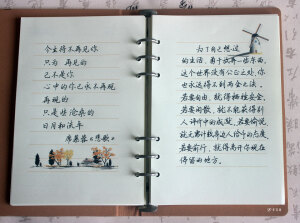 今生将不再见你
只为 再见的
已不是你
心中的你已永不再现
再现的
只是些沧桑的
日月和流年
席慕蓉《悲歌》
为了自己想过
的生活，勇于放弃一些东西。
这个世界没有公正之处，你
也永远得不到两全之法。
若要自由，就得牺牲安全。
若要闲散，就不能获得别
人评价中的成就。若要愉悦，
就无需计较身边人给予的态度。
若要前行，就得离开你现在
停留的地方。